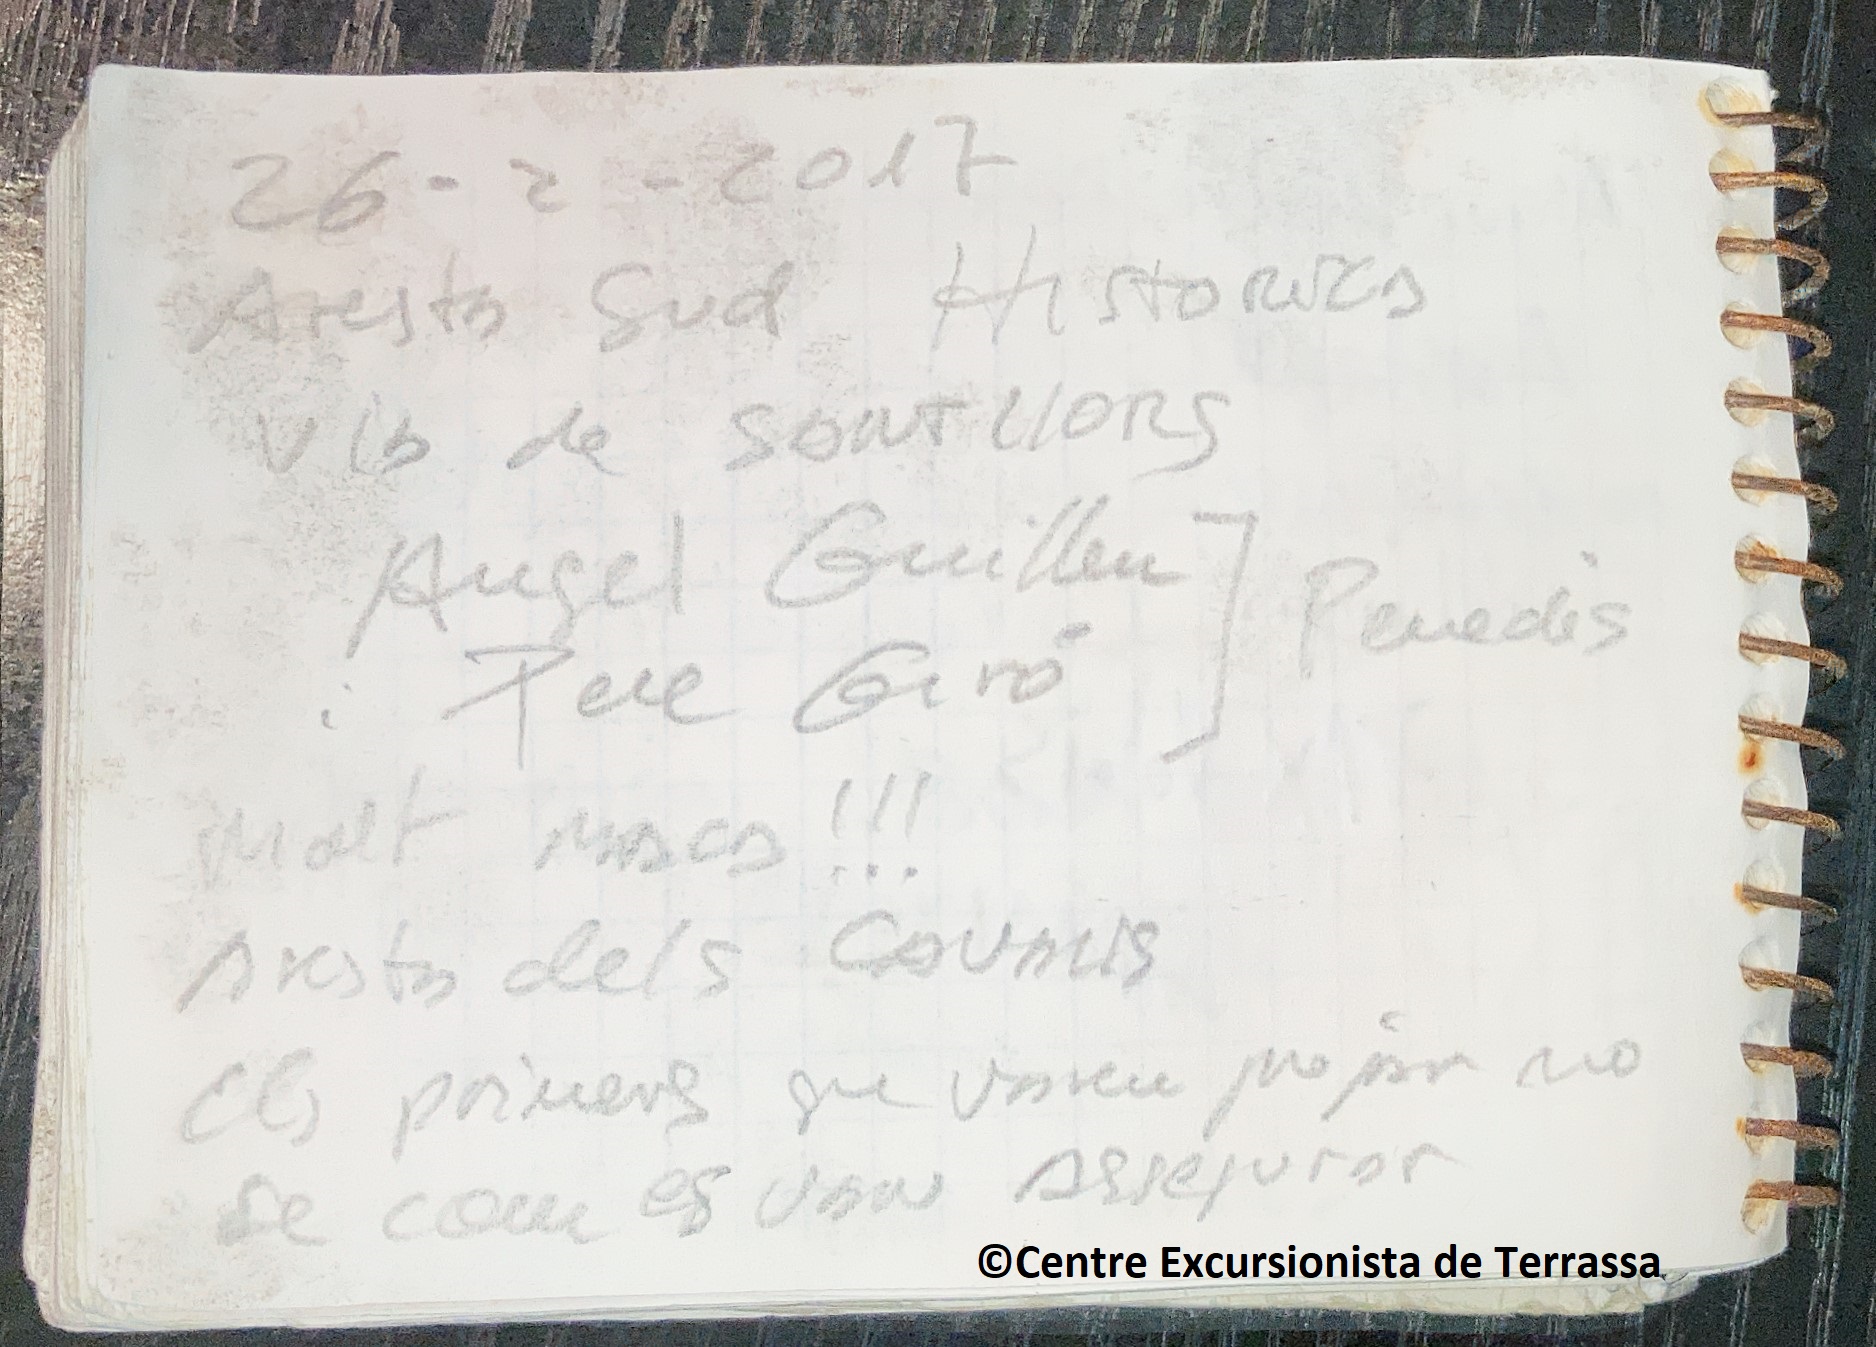 26-2-2017
Aresta Sud Historica
via de SANT LLORS
Angel Guillen
Penedès
i Pere Giró
Molt maca!!!
Aresta dels Cavalls
Els primers que varen pujar no
se com es van assegurar
©Centre Excursionista de Terrassa